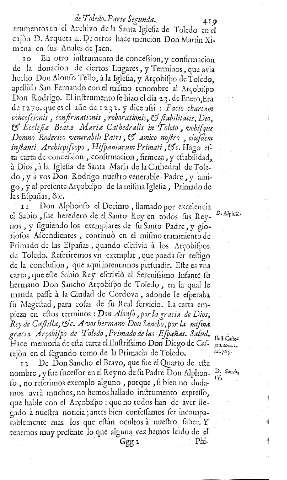 de Toledo. Parte Segunda. 419
trumentos en el Archivo de la Santa Iglesia de Toledo en el
cajon D. Arqueta 4. De otros hace mencion Don Martin Xi-
mena en sus Anales de Jaen.
10 En otro instrumento de concession, y confirmacion
de la donacion de ciertos Lugares, y Terminos, que avia
hecho Don Alonso Tello, à la Iglesia, y Arçobispo de Toledo,
apellida San Fernando con el mismo renombre al Arçobispo
Don Rodrigo. El instrumento se hizo el dia 23. de Enero, Era
de 1270. que es el año de 1232. y dice assi: Facio chartam
concessionis, confirmationis, roborationis, & stabilitatis, Deo,
& Ecclesiæ Beatæ Mariæ Cathedralis in Toleto, vobisque
Domno Roderico venerabili Patri, & amico nostro, eiusdem
instanti Archiepiscopo, Hispaniarum Primati, &c. Hago es-
ta carta de concession, confirmacion, firmeza, y estabilidad,
à Dios, à la Iglesia de Santa Maria de la Cathedral de Tole-
do, y à vos Don Rodrigo nuestro venerable Padre, y ami-
go, y al presente Arçobispo de la misma Iglesia, Primado de
las Españas, &c.
11 Don Alphonso el Decimo, llamado por excelencia
el Sabio, fue heredero de el Santo Rey en todos sus Rey-
nos, y siguiendo los exemplares de su Santo Padre, y glo-
riosos Ascendientes, continuò en el mismo tratamiento de
Primado de las Españas, quando escrivia à los Arçobispos
de Toledo. Referiremos un exemplar, que pueda ser testigo
de la conclusion, que aqui intentamos persuadir. Este es una
carta, que este Sabio Rey escriviò al Serenissimo Infante su
hermano Don Sancho Arçobispo de Toledo, en la qual le
manda passe à la Ciudad de Cordova, adonde le esperaba
su Magestad, para cosas de su Real servicio. La carta em-
pieza en estos terminos: Don Alonso, por la gracia de Dios,
Rey de Castilla, &c. A vos hermano Don Sancho, por la misma
gracia Arçobispo de Toledo, Primado de las Españas. Salud.
Hace memoria de esta carta el Ilustrissimo Don Diego de Cas-
tejon en el segundo tomo de la Primacia de Toledo.
12 De Don Sancho el Bravo, que fue el Quarto de este
nombre, y successor en el Reyno de su Padre Don Alphon-
so, no referimos exemplo alguno, porque, si bien no duda-
mos avrà muchos, no hemos hallado instrumento expresso,
que hable con el Arçobispo: que no todos han de aver lle-
gado à nuestra noticia; antes bien confessamos ser incompa-
rablemente mas los que están ocultos à nuestro saber. Y
tenemos muy presente lo que alguna vez hemos leido de el
Ggg 2 Phi-